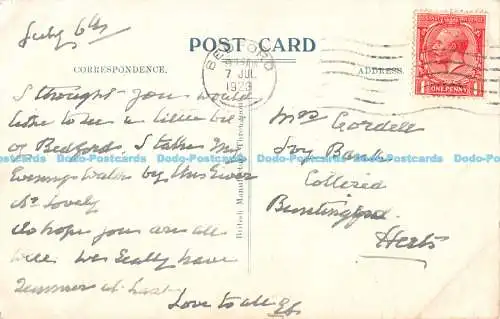 July 6th
POST CARD
CORRESPONDENCE.
ADDRESS.
BEDFORD
7 JUL
1923
ONE PENNY
I thought you would
like to see a little bit
of Bedford. I take my
Evenings walks by this River
its lovely
do hope you are all
well. We really have
Summer at last
Love to all
Mrs Cordell
Ivy Bank
Cottered
Buntingford
Herts
British Manufacture Throughout
Dodo-Postcards Dodo-Postcards Dodo-Postcards Dodo-Postcards Dodo-Postcards